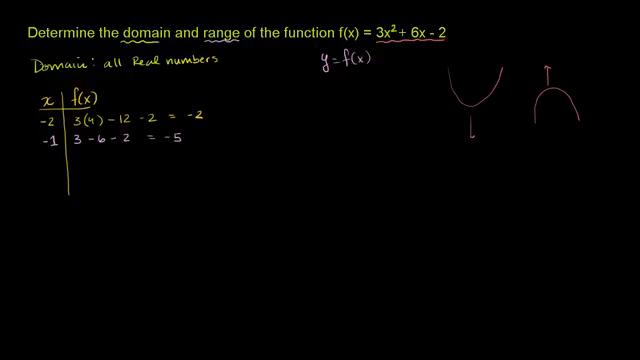 Determine the domain and range of the function f(x) = 3x² + 6x - 2
Domain: all Real numbers
y = f(x)
x f(x)
-2 3(4) - 12 - 2 = -2
-1 3 - 6 - 2 = -5